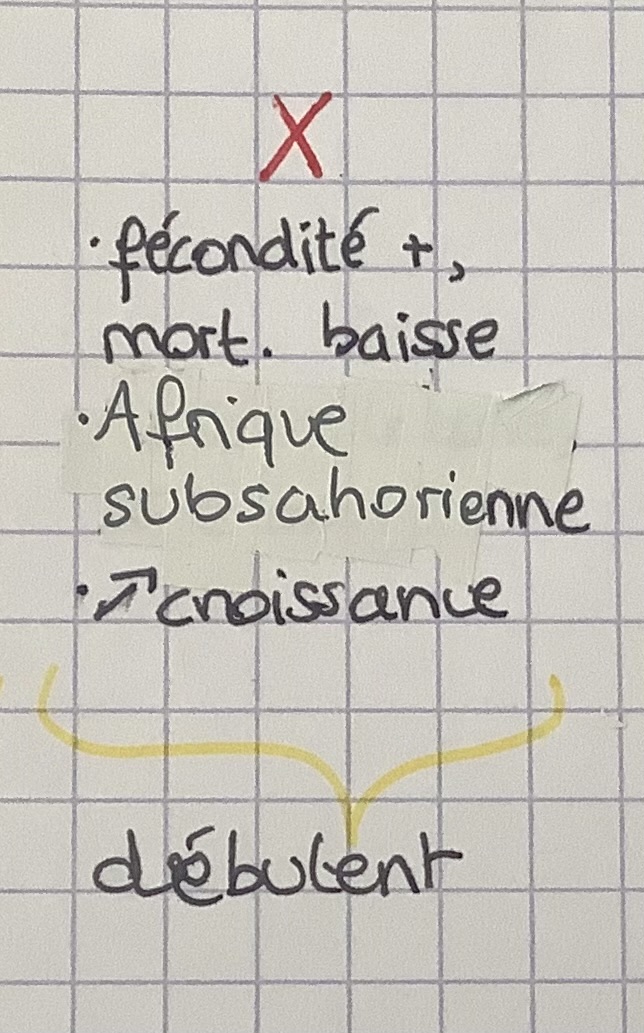 X
· fécondité +,
mort. baisse
· Afrique
subsahorienne
· ↗ croissance
débutent